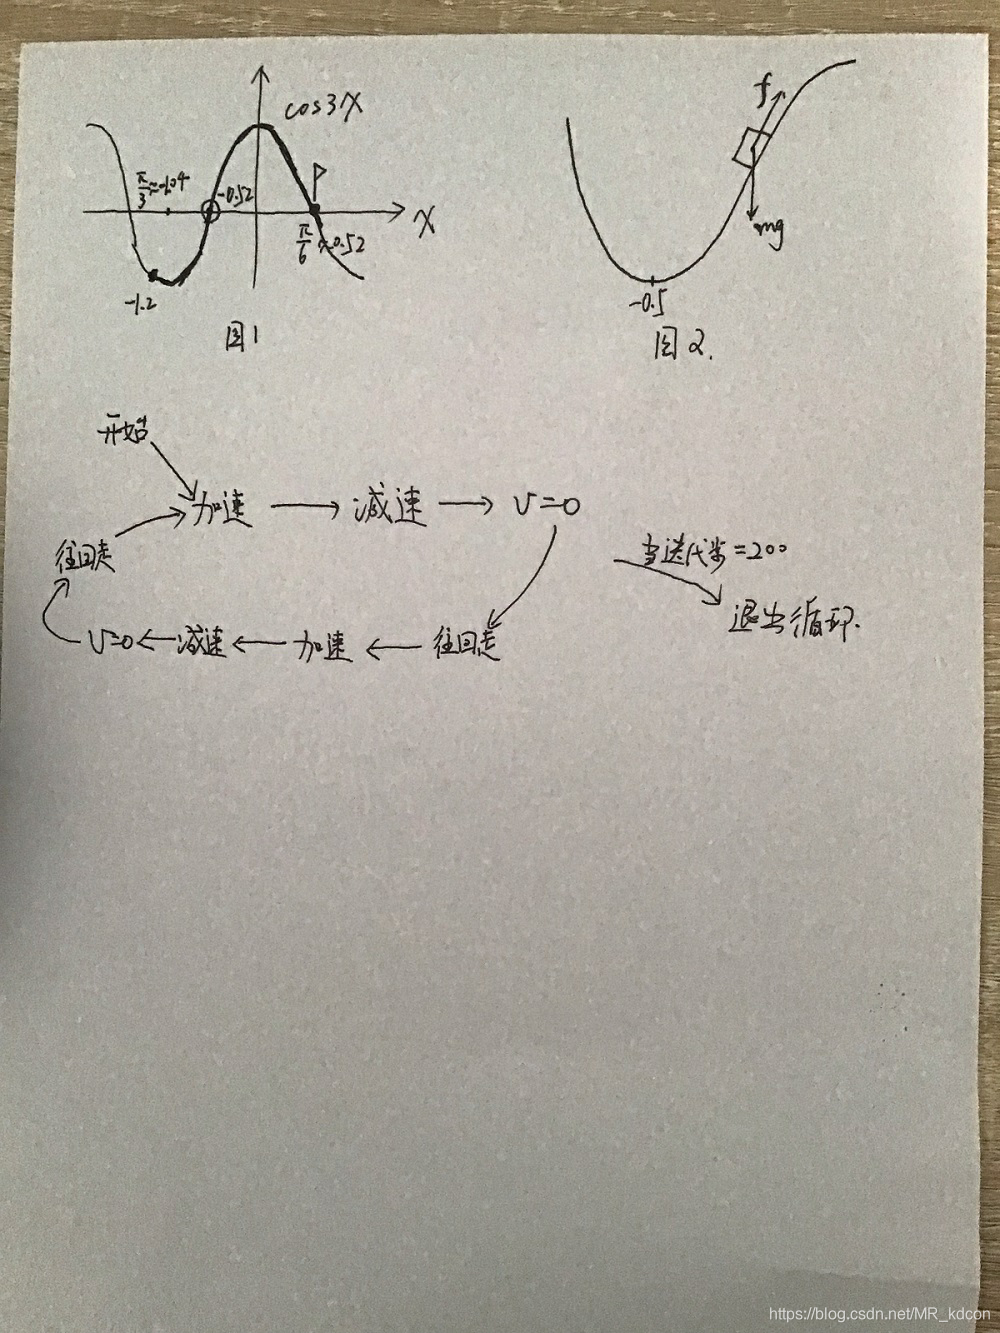 cos3x
f
π/3≈-1.04
-0.52
x
π/6≈0.52
mg
-1.2
-0.5
图1
图2.
开始
加速 → 减速 → v=0
往回走
当迭代步=200
退出循环.
v=0 ← 减速 ← 加速 ← 往回走
https://blog.csdn.net/MR_kdcon